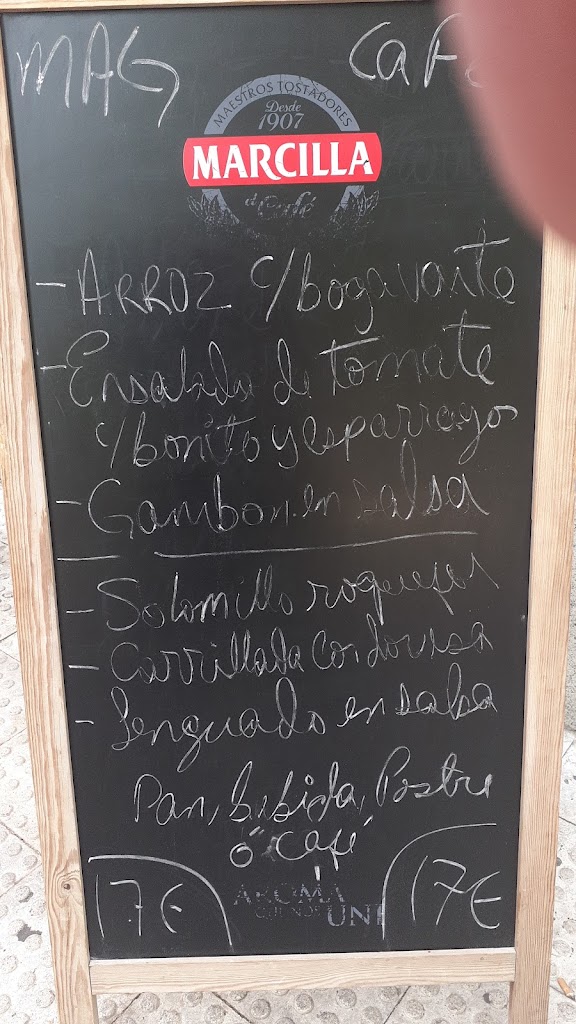 MAG CAFE
MAESTROS TOSTADORES
Desde
1907
MARCILLA
el Café
- ARROZ c/bogavante
- Ensalada de tomate
c/bonito y esparragos
- Gambon en salsa
- Solomillo roquefor
- Carrillada Cordovesa
- Lenguado en salsa
Pan, bebida, Postre
ó café
17€ 17€
AROMA
QUE NOS UNE